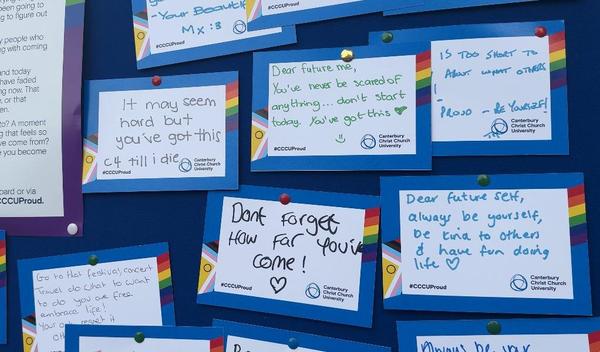 been going to
to figure out
y people who
with coming
and today
have faded
now. That
or that
en.
? A moment
feels so
come from?
you become
board or via
#CCCUProud.
- Your Beautiful
Mx :3
#CCCUProud
It may seem
hard but
you've got this
c4 till i die
#CCCUProud
Canterbury
Christ Church
University
Dear future me,
You've never be scared of
anything... don't start
today. You've got this
#CCCUProud
Canterbury
Christ Church
University
IS TOO SHORT TO
ABOUT WHAT OTHERS
PROUD - BE YOURSELF!
Canterbury
Christ Church
University
Dont forget
How far you've
come!
#CCCUProud
Canterbury
Christ Church
University
Dear future self,
always be yourself,
be kind to others
& have fun doing
life
#CCCUProud
Canterbury
Christ Church
University
Go to that festival, concert
Travel do what to want
to do you are free
embrace life!
Your regret it
Always be your